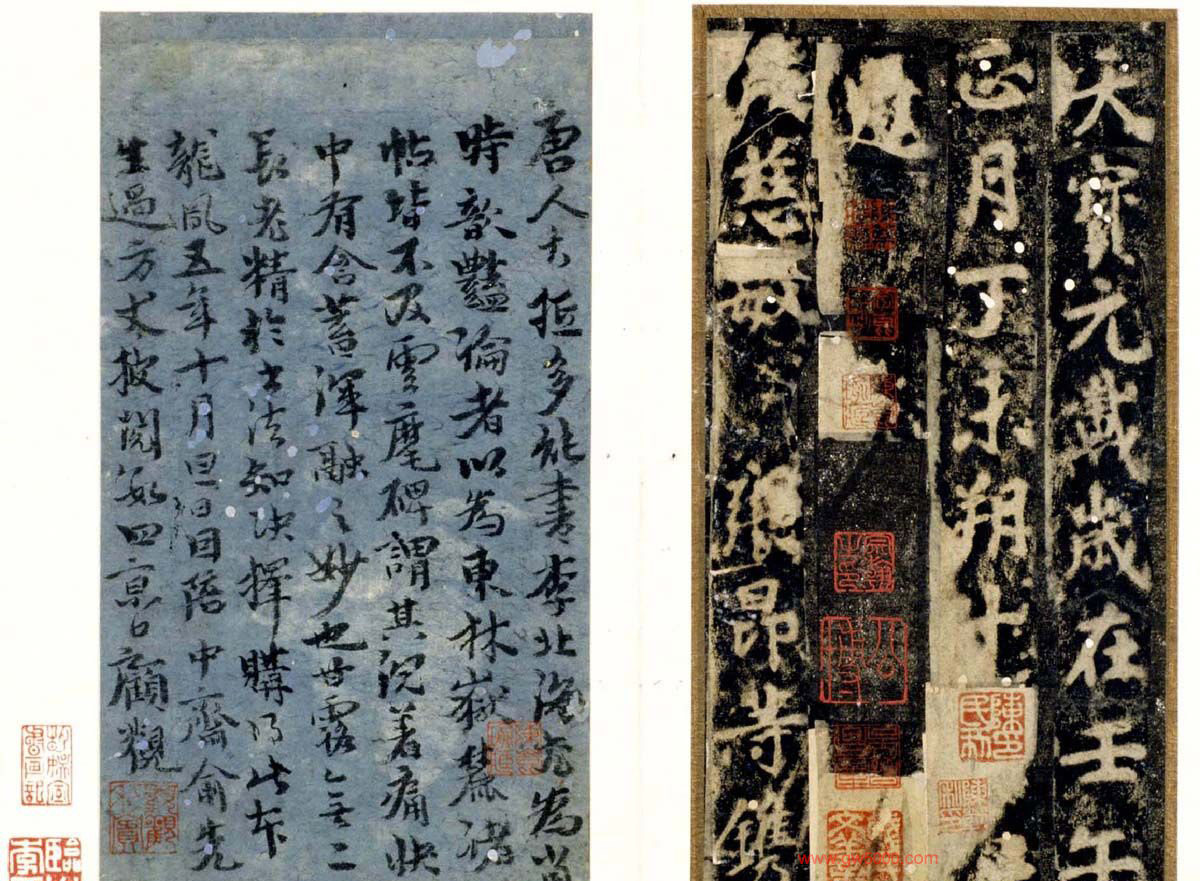 天寶元載歲在壬午
正月丁未朔十
慧敏張昂等鐫
唐人大抵多能書李北海尤為當
時歆豔論者以為東林嶽麓諸
帖皆不及雲麾碑謂其沉着痛快
中有含蓄渾融之妙也甘露無二
長老精於書法知決擇購得此本
龍鳳五年十月四日因陪中齋俞先
生過方丈披閱數四京口顧觀